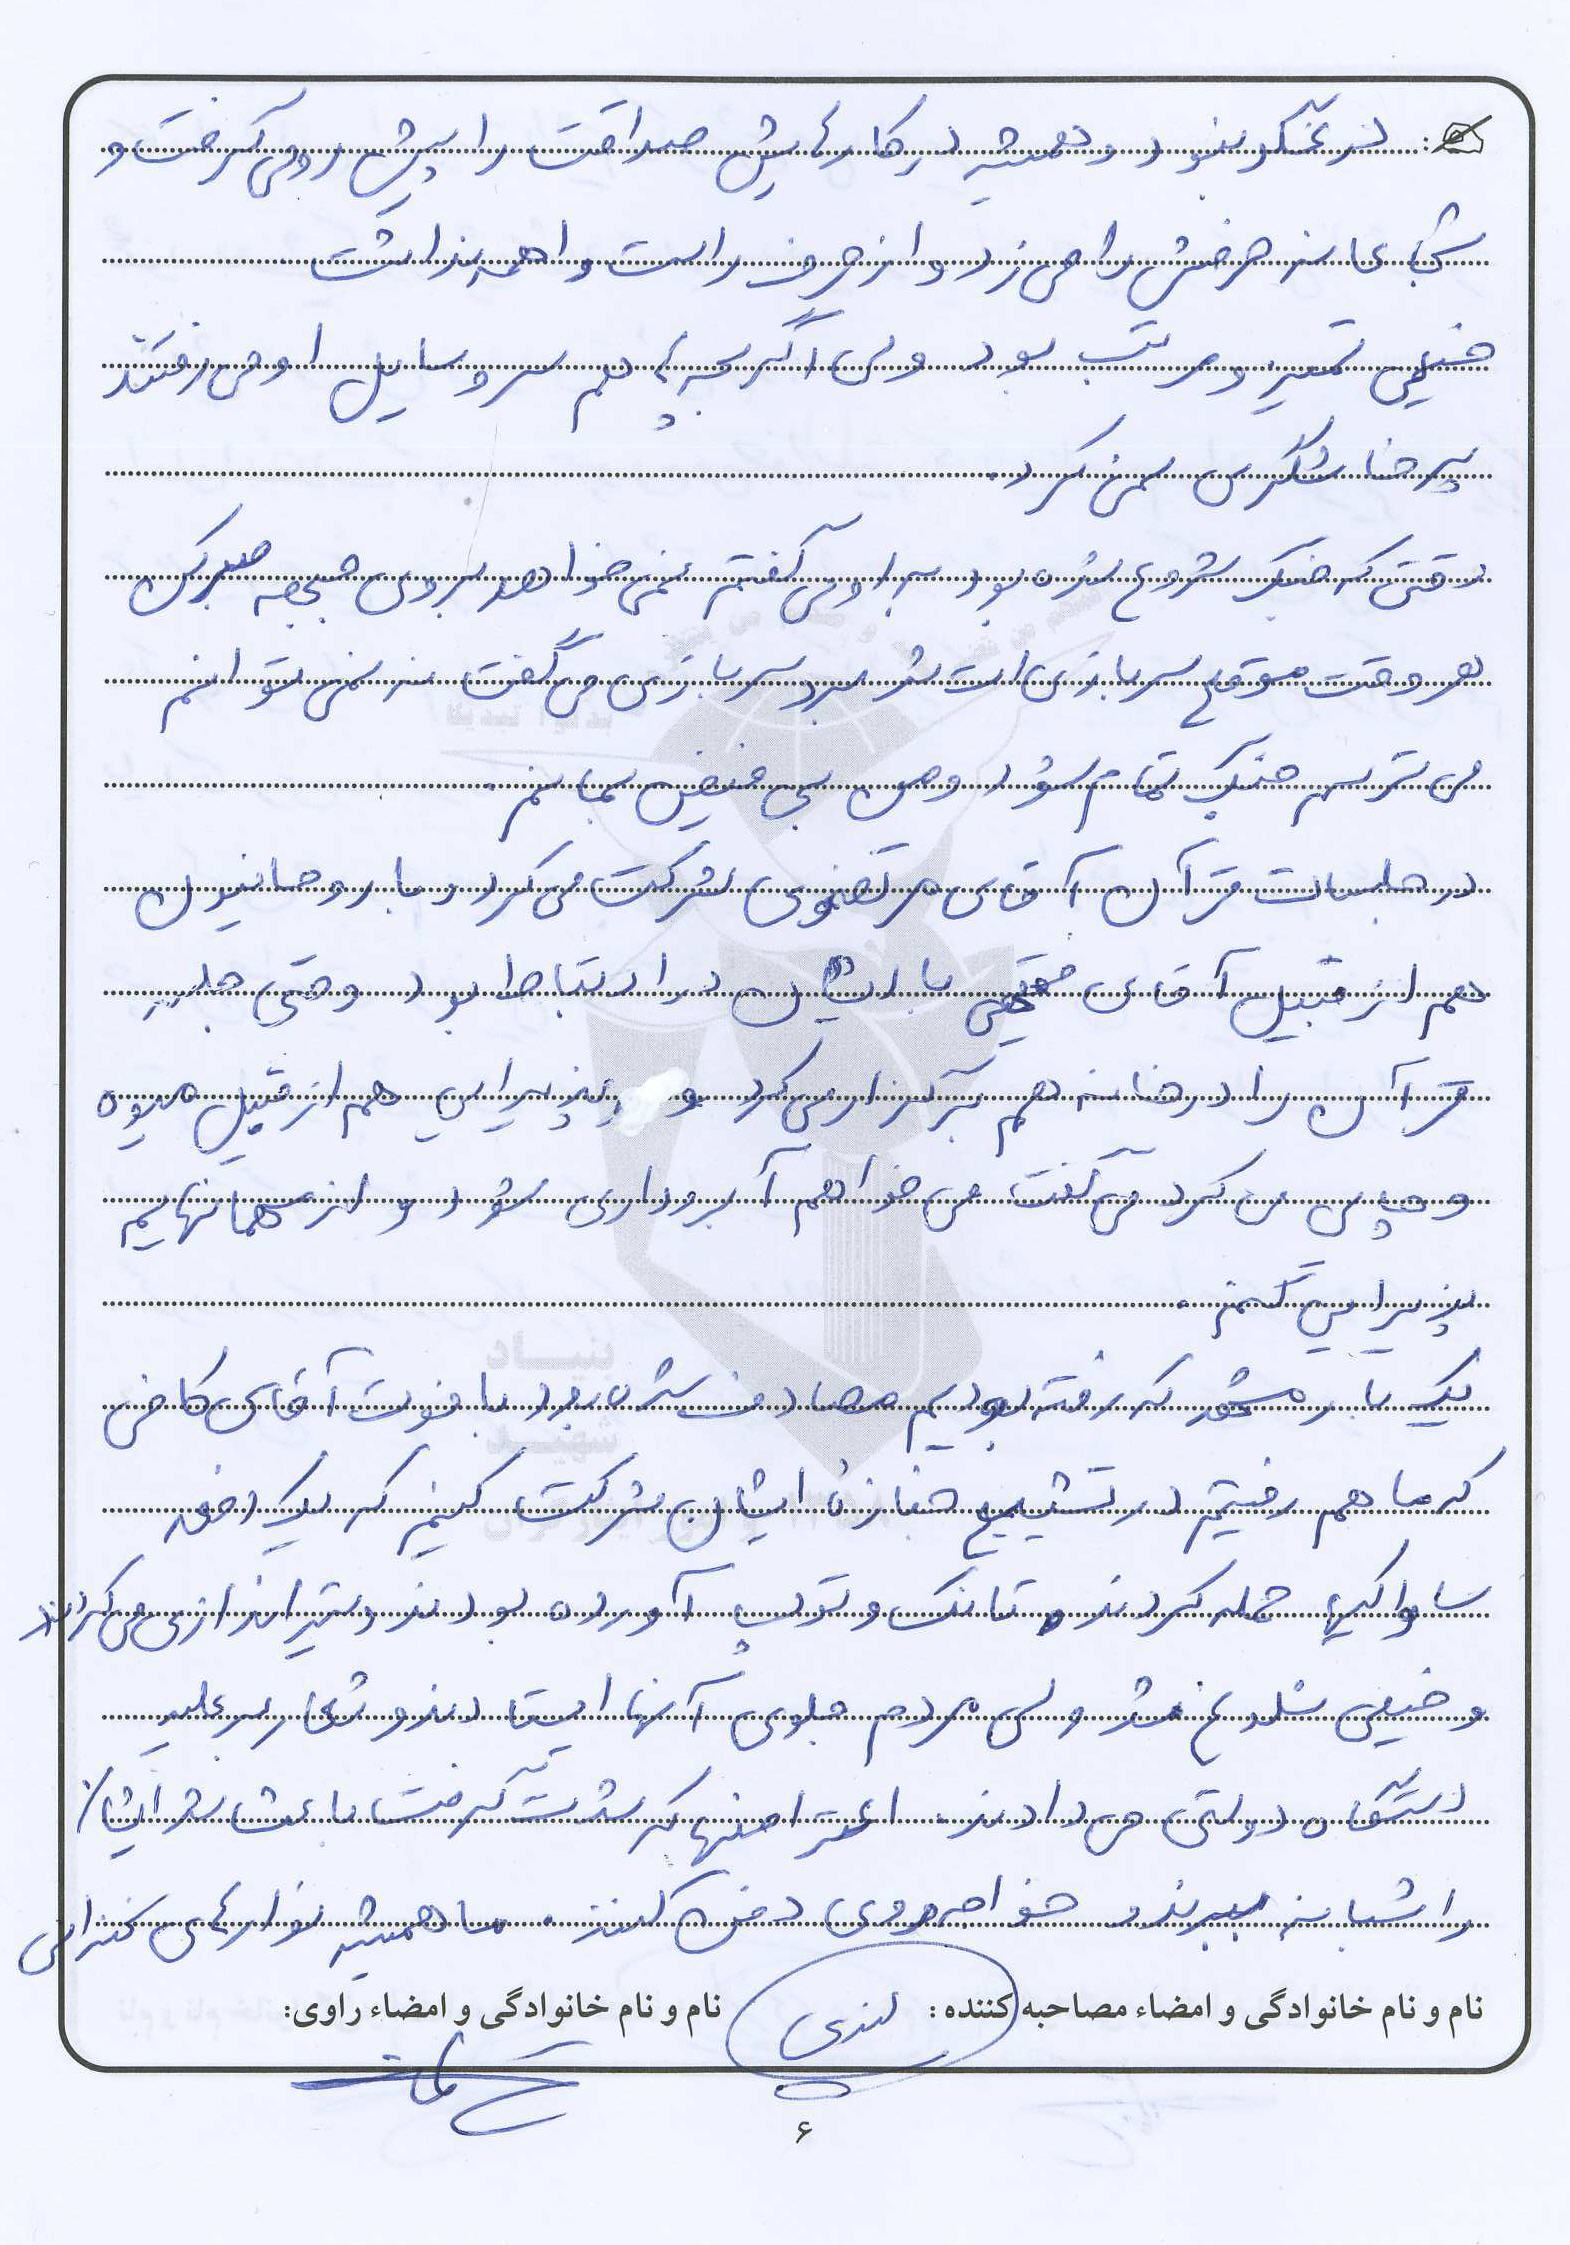 دروغگو نبود و همیشه در کارهایش صداقت را پیش رو می گرفت و
شجاعانه حرفش را می زد و از حرف راست واهمه نداشت
خیلی تمیز و مرتب بود ولی اگر بچه ها هم سر وسایل او می رفتند
پرخاشگری نمی کرد.
وقتی که جنگ شروع شده بود به او می گفتم نمی خواهد بروی جبهه صبر کن
هر وقت موقع سربازی ات شد برو سربازی می گفت نه نمی توانم
می ترسم جنگ تمام شود و من بی فیض بمانم.
در جلسات قرآن آقای مرتضوی شرکت می کرد و با روحانیون
هم از قبیل آقای با ایشان در ارتباط بود وقتی جلسه
قرآن را در خانه هم برگزار می کرد و پذیرایی هم از قبیل میوه
و می کرد می گفت می خواهم آبروداری شود و از مهمانهایم
پذیرایی کنم.
یک بار مشهد که رفته بودیم مصادف شده بود با فوت آقای کافی
که ما هم رفتیم در تشییع جنازه ایشان شرکت کنیم که یک دفعه
ساواکیها حمله کردند و تانک و توپ آورده بودند و تیراندازی می کردند
و خیلی شلوغ شد ولی مردم جلوی آنها ایستادند و شعار بر علیه
دستگاه دولتی می دادند. اعتراضها که شدت گرفت باعث شد ایشان
را شبانه ببرند و خواجه ربیع دفن کنند. ما همیشه نوارهای سخنرانی
نام و نام خانوادگی و امضاء مصاحبه کننده: نام و نام خانوادگی و امضاء راوی:
۶